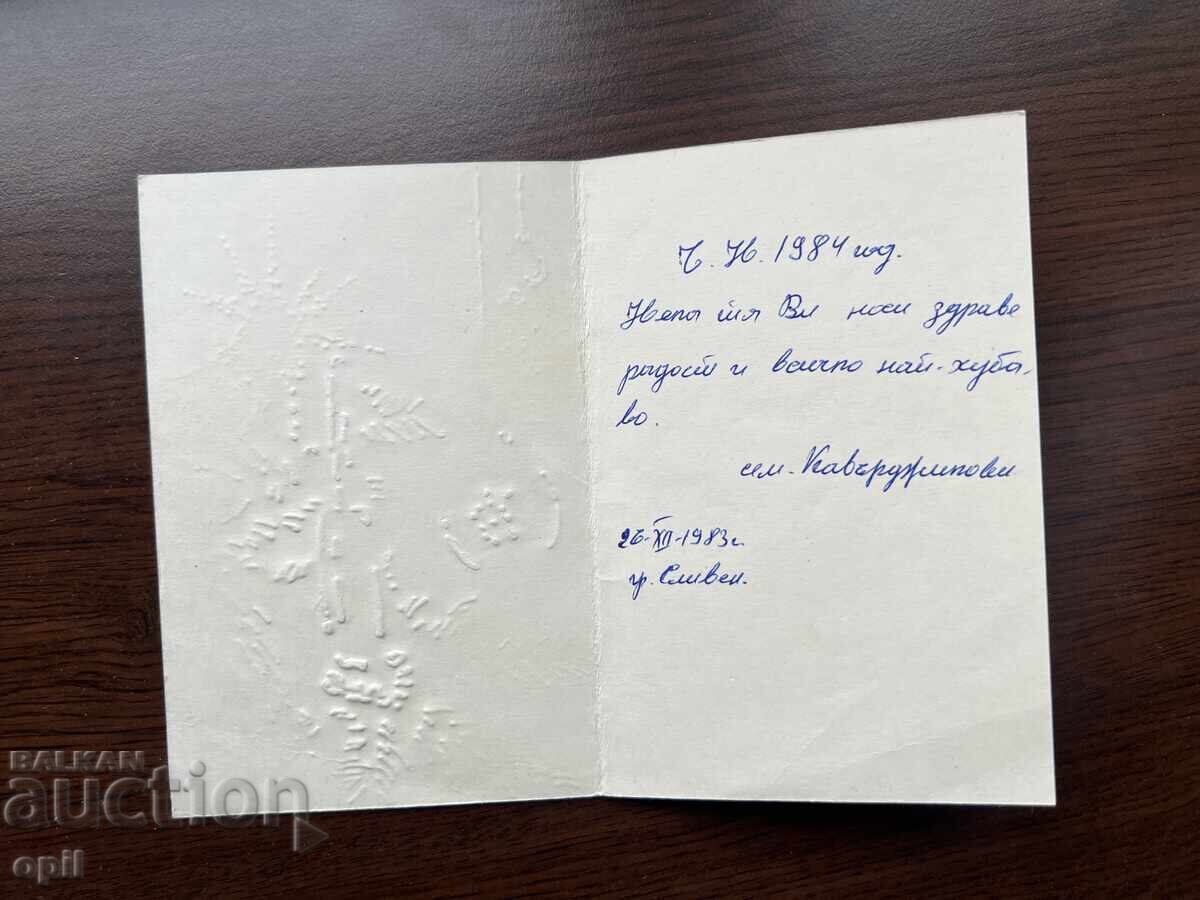 Ч. Н. 1984 год.
Нека тя Ви носи здраве
радост и всичко най-хуба-
во.
сем. Кавърджикови
26-XII-1983г.
гр. Сливен.
BALKAN
auction
opil